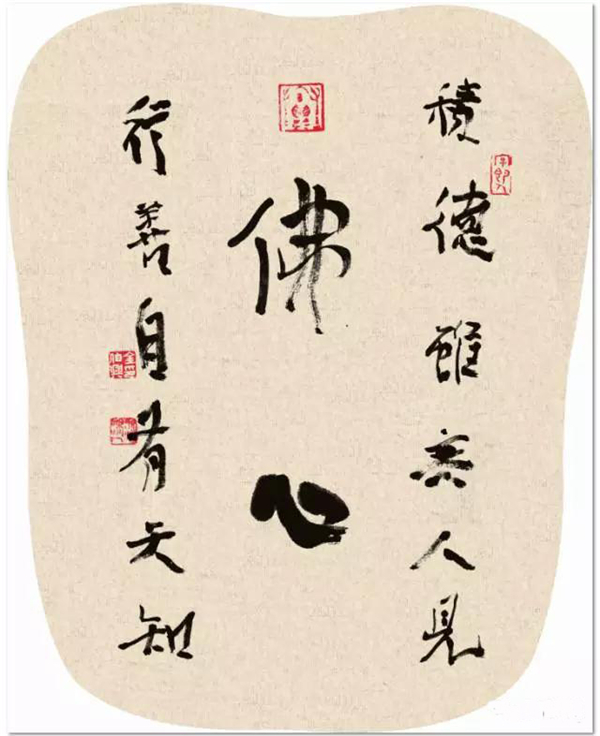 積德雖無人見
佛心
行善自有天知